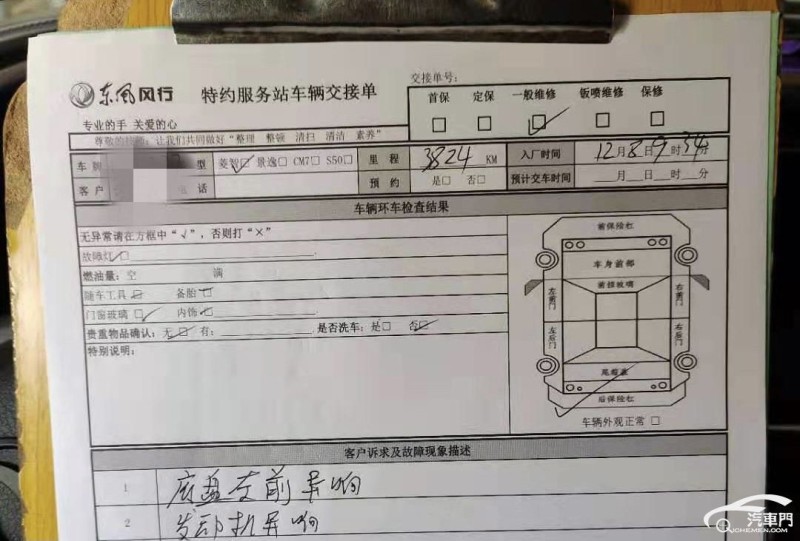 东风风行 特约服务站车辆交接单
交接单号:
首保 定保 一般维修 钣喷维修 保修
□ □ □ □ □
专业的手 关爱的心
尊敬的 让我们共同做好“整理 整顿 清扫 清洁 素养”
车别 型 菱智□ 景逸□ CM7□ S50□ 里程 3824 KM 入厂时间 12月8日9时34分
客户 电话 预约 是□ 否□ 预计交车时间 __月__日__时__分
车辆环车检查结果
无异常请在方框中“√”,否则打“×”
故障灯□
燃油量:空 满
随车工具□ 备胎□
门窗玻璃□ 内饰□
贵重物品确认:无□ 有: 是否洗车:是□ 否□
特别说明:
前保险杠
车身前部
前挡玻璃
左前门 右前门
左后门 右后门
尾箱盖
后保险杠
车辆外观正常□
客户诉求及故障现象描述
1 底盘左前异响
2 发动机异响
汽車門
QICHEMEN.COM